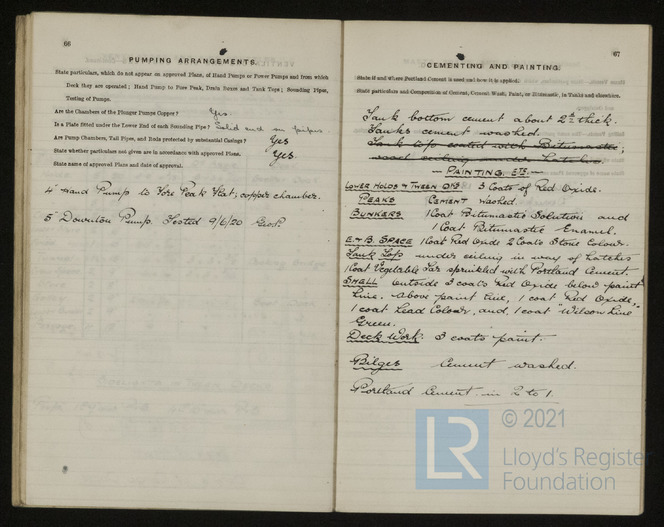 66
PUMPING ARRANGEMENTS.
State particulars, which do not appear on approved Plans, of Hand Pumps or Power Pumps and from which
Deck they are operated; Hand Pump to Fore Peak, Drain Boxes and Tank Tops; Sounding Pipes,
Testing of Pumps.
Are the Chambers of the Plunger Pumps Copper? Yes.
Is a Plate fitted under the Lower End of each Sounding Pipe? Solid end in pipes
Are Pump Chambers, Tail Pipes, and Rods protected by substantial Casings? Yes
State whether particulars not given are in accordance with approved Plans. Yes.
State name of approved Plans and date of approval.
4" Hand Pump to Fore Peak Flat; copper chamber.
5" Downton Pump. Tested 9/6/20
67
CEMENTING AND PAINTING.
State if and where Portland Cement is used and how it is applied.
State particulars and Composition of Cement, Cement Wash, Paint, or Bitumastic, in Tanks and elsewhere.
Tank bottom cement about 2" thick.
Tanks cement washed.
Tank tops coated with Bitumastic;
wood ceiling under hatches.
— PAINTING. ETC. —
LOWER HOLDS & TWEEN DKS 3 Coats of Red Oxide.
PEAKS CEMENT washed.
BUNKERS 1 Coat Bitumastic Solution and
1 Coat Bitumastic Enamel.
E & B. SPACE 1 Coat Red Oxide 2 Coats Stone Colour.
Tank Tops under ceiling in way of hatches
1 Coat Vegetable Tar sprinkled with Portland Cement.
SHELL outside 3 coats Red Oxide below paint
line. above paint line, 1 coat Red Oxide,
1 coat Lead Colour, and, 1 coat "Wilson Line"
Green.
Deck Work. 3 coats paint.
Bilges Cement washed.
Portland Cement in 2 to 1.
LR
© 2021
Lloyd's Register
Foundation